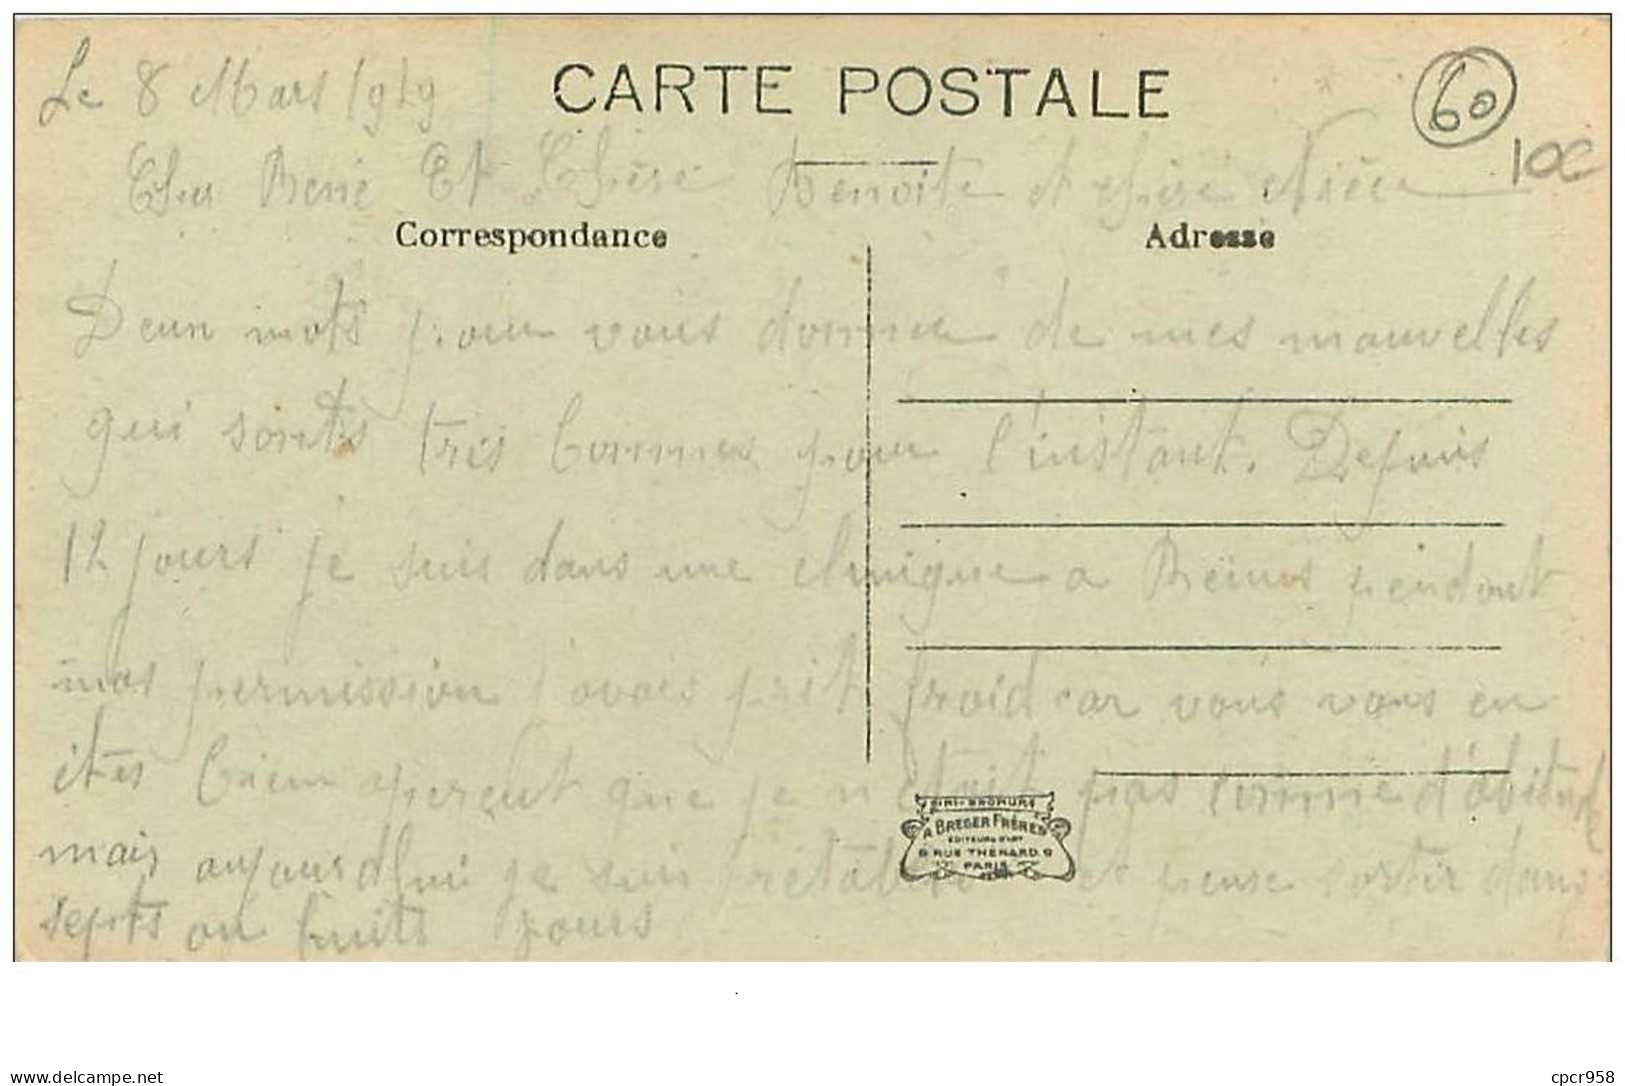 Le 8 Mars 1919
CARTE POSTALE
60
10€
Cher René Et Chère Benoite et chère Nièce
Correspondance
Adresse
Deux mots pour vous donner de mes nouvelles
qui sonts très bonnes pour l'instant. Depuis
12 jours je suis dans une clinique a Reims pendant
mas permission j'avais prit froid car vous vous en
êtes bien aperçut que je n'était pas comme d'abitude
mais aujourdhui je suis rétabli et pense sortir dans
septs ou huits jours
SIMI-BROMURE
A. BREGER FRÈRES
ÉDITEURS D'ART
9 RUE THENARD 9
PARIS
www.delcampe.net
cpcr958